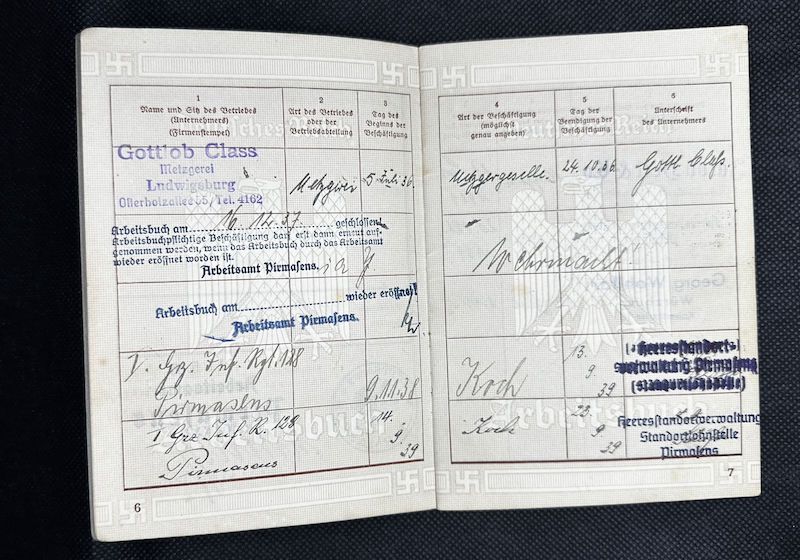 1
Name und Sitz des Betriebes
(Unternehmers)
(Firmenstempel)
2
Art des Betriebes
oder der
Betriebsabteilung
3
Tag des
Beginns der
Beschäftigung
Gottlob Class
Metzgerei
Ludwigsburg
Oßerholzallee 55, Tel. 4162
Metzgerei
5 Juli 36
Arbeitsbuch am 16.12.37. geschlossen!
Arbeitsbuchpflichtige Beschäftigung darf erst dann erneut auf-
genommen werden, wenn das Arbeitsbuch durch das Arbeitsamt
wieder eröffnet worden ist.
Arbeitsamt Pirmasens.
Arbeitsbuch am wieder eröffnet!
Arbeitsamt Pirmasens.
I. Grz. Inf. Rgt. 128
Pirmasens
9.11.38
I Grz Inf. R. 128
Pirmasens
14.
9.
39
6
4
Art der Beschäftigung
(möglichst
genau angeben)
5
Tag der
Beendigung der
Beschäftigung
6
Unterschrift
des Unternehmers
Metzgergeselle.
24.10.36.
Gottl. Class.
Wehrmacht.
Koch
13.
9.
39
(Heeresstandort-
verwaltung Pirmasens
Koch
22.
9.
39
Heeresstandortverwaltung
Standortlohnstelle
Pirmasens
7